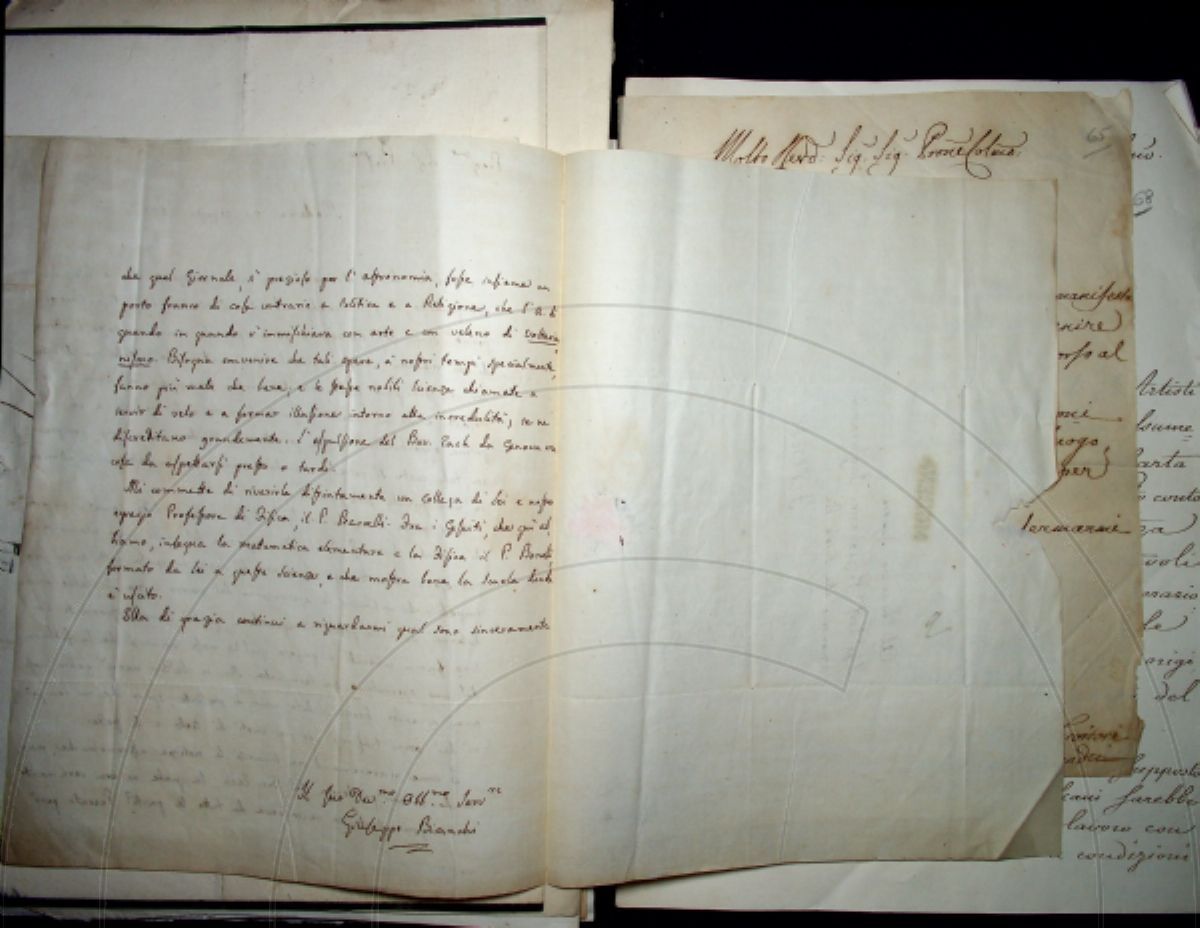 che quel Giornale, sì prezioso per l'astronomia, fosse insieme un
porto franco di cose contrarie a Politica e a Religione, che l'A. di
quando in quando v'immischiava con arte e con veleno di Voltaria
nismo. Bisogna convenire che tali opere, a' nostri tempi specialmente,
fanno più male che bene, e le stesse nobili Scienze chiamate a
servir di velo e a formar illusione intorno alla incredulità, se ne
discreditano grandemente. L'espulsione del Bar. Zach da Genova era
cosa da aspettarsi presto o tardi.
Mi commette di riverirla distintamente un collega di lei e nostro
egregio Professore di Fisica il P. Fra i Gesuiti, che quì
insegna la matematica elementare e la Fisica il P.
formato da lei a questa scienza, e che mostra bene la scuola
è uscito.
Ella di grazia continui a riguardarmi qual sono sinceramente
Il suo Dev.mo Obb.mo Serv.re
Giuseppe Bianchi
Molto Rev.d: Sig. Sig.
65
68
manifesto
nire
orso al
mei
luogo
per
Artisti
carta
conto
le
del
supposto
sarebbe
lavoro con
condizioni